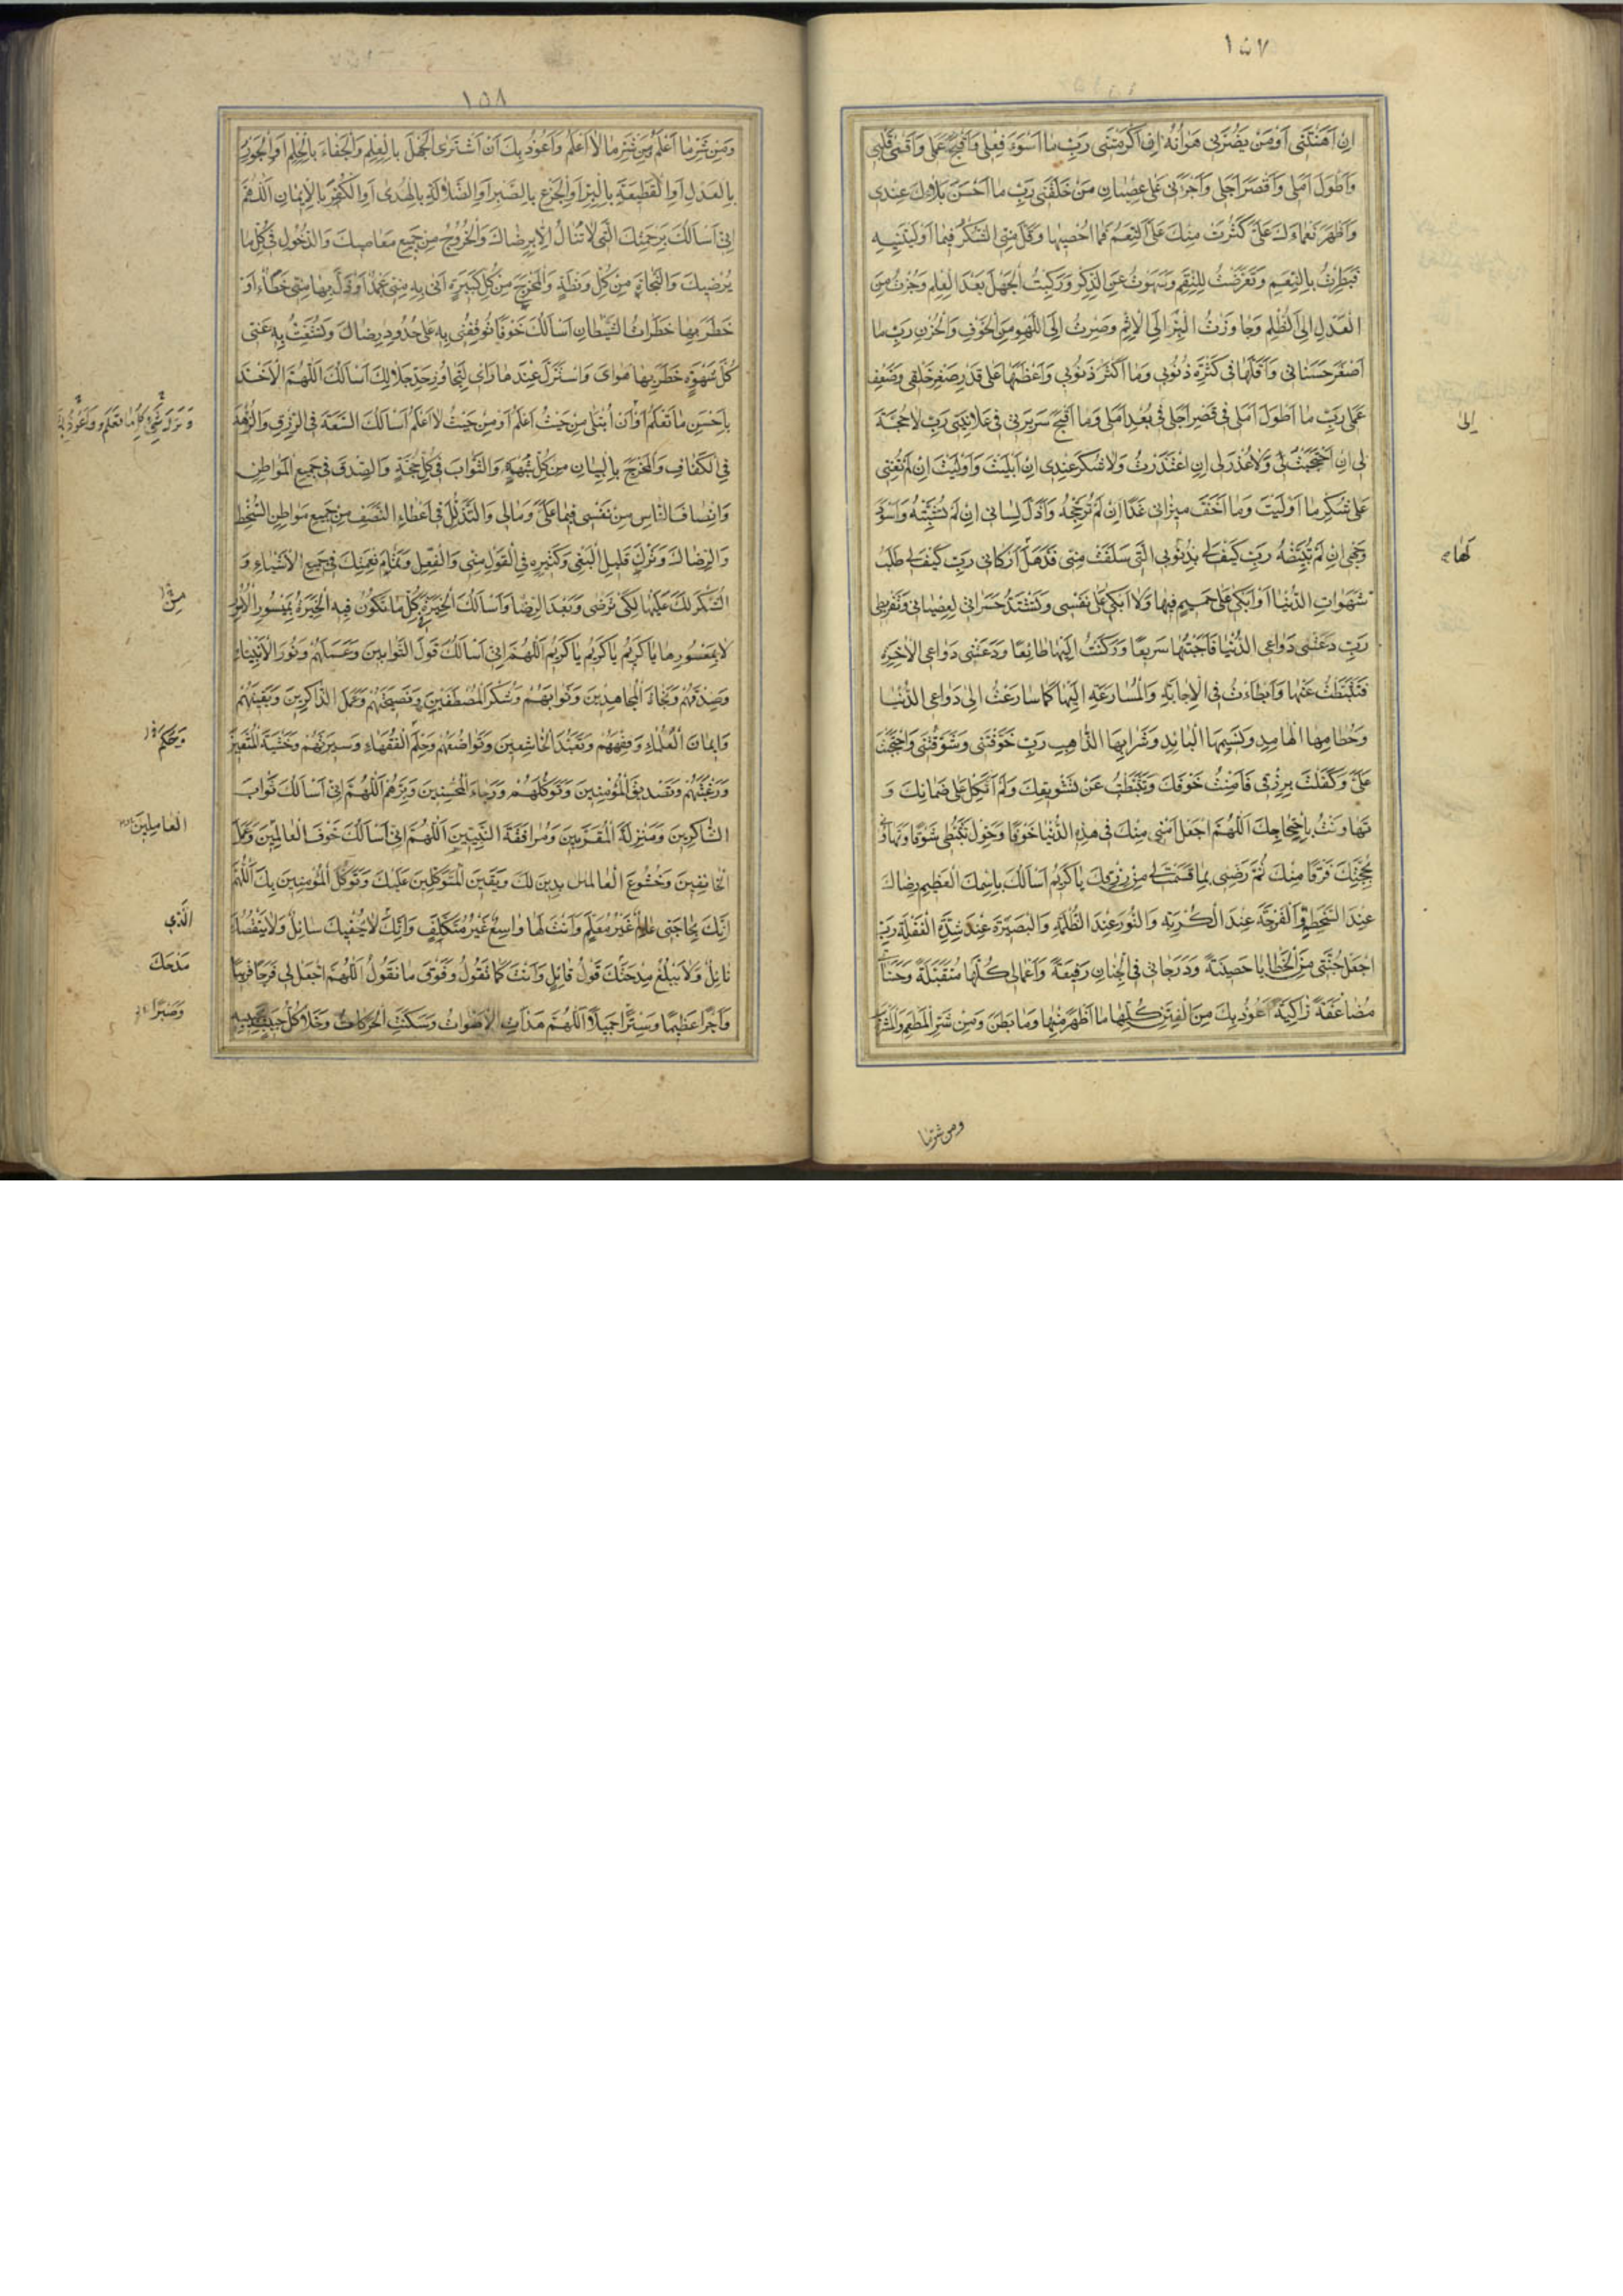 ١٥٧
اِنْ اَهَنْتَنى اَوْ مَنْ يَضُرُّنى هَوانُهُ اِنْ اَكْرَمْتَنى رَبِّ ما اَسْوَءَ فِعْلى وَاَقْبَحَ عَمَلى وَاَقْسى قَلْبى
وَاَطْوَلَ اَمَلى وَاَقْصَرَ اَجَلى وَاَجْرَأَنى عَلى عِصْيانِ مَنْ خَلَقَنى رَبِّ ما اَحْسَنَ بَلاؤَكَ عِنْدى
وَاَظْهَرَ نَعْماءَكَ عَلَىَّ كَثُرَتْ مِنْكَ عَلَىَّ النِّعَمُ فَما اُحْصيها وَقَلَّ مِنِّى الشُّكْرُ فيما اَوْلَيْتَنيهِ
فَبَطِرْتُ بِالنِّعَمِ وَتَعَرَّضْتُ لِلنِّقَمِ وَسَهَوْتُ عَنِ الذِّكْرِ وَرَكِبْتُ الْجَهْلَ بَعْدَ الْعِلْمِ وَجُزْتُ مِنَ
الْعَدْلِ اِلَى الظُّلْمِ وَجاوَزْتُ الْبِرَّ اِلَى الْاِثْمِ وَصِرْتُ اِلَى اللَّهْوِ مِنَ الْخَوْفِ وَالْحُزْنِ رَبِّ ما
اَصْغَرَ حَسَناتى وَاَقَلَّها فى كَثْرَةِ ذُنُوبى وَما اَكْثَرَ ذُنُوبى وَاَعْظَمَها عَلى قَدْرِ صِغَرِ خَلْقى وَضَعْفِ
عَمَلى رَبِّ ما اَطْوَلَ اَمَلى فى قِصَرِ اَجَلى فى بُعْدِ اَمَلى وَما اَقْبَحَ سَريرَتى فى عَلانِيَتى رَبِّ لا حُجَّةَ
اِلى
لى اِنِ احْتَجَجْتُ وَلا عُذْرَ لى اِنِ اعْتَذَرْتُ وَلا شُكْرَ عِنْدى اِنْ اَبْلَيْتَ وَاَوْلَيْتَ اِنْ لَمْ تُعِنّى
عَلى شُكْرِ ما اَوْلَيْتَ وَما اَخَفَّ ميزانى غَدًا اِنْ لَمْ تُرَجِّحْهُ وَاَذَلَّ لِسانى اِنْ لَمْ تُثَبِّتْهُ وَاَسْوَدَ
وَجْهى اِنْ لَمْ تُبَيِّضْهُ رَبِّ كَيْفَ لى بِذُنُوبِى الَّتى سَلَفَتْ مِنّى قَدْ هَدَّ اَرْكانى رَبِّ كَيْفَ لى طَلَبُ
لَها
شَهَواتِ الدُّنْيا اَوْ اَبْكى عَلى حَميمٍ فيها وَلا اَبْكى عَلى نَفْسى وَتَشْتَدُّ حَسَراتى لِعِصْيانى وَتَفْريطى
رَبِّ دَعَتْنى دَواعِى الدُّنْيا فَاَجَبْتُها سَريعًا وَرَكَنْتُ اِلَيْها طائِعًا وَدَعَتْنى دَواعِى الْاخِرَةِ
فَتَثَبَّطْتُ عَنْها وَاَبْطَاْتُ فِى الْاِجابَةِ وَالْمُسارَعَةِ اِلَيْها كَما سارَعْتُ اِلى دَواعِى الدُّنْيا
وَحُطامِهَا الْهامِدِ وَنَسيمِهَا الْبائِدِ وَشَرابِهَا الذّاهِبِ رَبِّ خَوَّفْتَنى وَشَوَّقْتَنى وَاحْتَجَجْتَ
عَلَىَّ وَكَفَلْتَ بِرِزْقى فَاَمِنْتُ خَوْفَكَ وَتَثَبَّطْتُ عَنْ تَشْويقِكَ وَلَمْ اَتَّكِلْ عَلى ضَمانِكَ وَ
تَهاوَنْتُ بِاحْتِجاجِكَ اَللّهُمَّ اجْعَلْ اَمْنى مِنْكَ فى هذِهِ الدُّنْيا خَوْفًا وَحَوِّلْ تَثَبُّطى شَوْقًا وَتَهاوُنى
بِحُجَّتِكَ فَرَقًا مِنْكَ ثُمَّ رَضِّنى بِما قَسَمْتَ لى مِنْ رِزْقِكَ يا كَريمُ اَسْاَلُكَ بِاسْمِكَ الْعَظيمِ رِضاكَ
عِنْدَ السَّخْطَةِ وَالْفَرْجَةَ عِنْدَ الْكُرْبَةِ وَالنُّورَ عِنْدَ الظُّلْمَةِ وَالْبَصيرَةَ عِنْدَ شِدَّةِ الْغَفْلَةِ رَبِّ
اجْعَلْ جُنَّتى مِنَ الْخَطايا حَصينَةً وَدَرَجاتى فِى الْجِنانِ رَفيعَةً وَاَعْمالى كُلَّها مُتَقَبَّلَةً وَحَسَناتى
مُضاعَفَةً زاكِيَةً اَعُوذُ بِكَ مِنَ الْفِتَنِ كُلِّها ما ظَهَرَ مِنْها وَما بَطَنَ وَمِنْ شَرِّ الْمَطْعَمِ وَالْمَشْرَبِ
ومن شر ما
١٥٨
وَمِنْ شَرِّ ما اَعْلَمُ وَمِنْ شَرِّ ما لا اَعْلَمُ وَاَعُوذُ بِكَ اَنْ اَشْتَرِىَ الْجَهْلَ بِالْعِلْمِ وَالْجَفاءَ بِالْحِلْمِ اَوِ الْجَوْرَ
بِالْعَدْلِ اَوِ الْقَطيعَةَ بِالْبِرِّ اَوِ الْجَزَعَ بِالصَّبْرِ اَوِ الضَّلالَةَ بِالْهُدى اَوِ الْكُفْرَ بِالْاِيمانِ اَللّهُمَّ
اِنّى اَسْاَلُكَ بِرَحْمَتِكَ الَّتى لا تُنالُ اِلّا بِرِضاكَ وَالْخُرُوجَ مِنْ جَميعِ مَعاصيكَ وَالدُّخُولَ فى كُلِّ ما
يُرْضيكَ وَالنَّجاةَ مِنْ كُلِّ وَرْطَةٍ وَالْمَخْرَجَ مِنْ كُلِّ كَبيرَةٍ اَتى بِهِ مِنّى عَمْدٌ اَوْ زَلَّ بِها مِنّى خَطَاٌ اَوْ
خَطَرَ بِها خَطَراتُ الشَّيْطانِ اَسْاَلُكَ خَوْفًا تُوقِفُنى بِهِ عَلى حُدُودِ رِضاكَ وَتُشَعِّثُ بِهِ عَنّى
كُلَّ شَهْوَةٍ خَطَرَ بِها هَواىَ وَاسْتَزَلَّ عِنْدَها رَاْيى لِتَجاوُزِ حَدِّ حَلالِكَ اَسْاَلُكَ اَللّهُمَّ الْاَخْذَ
بِاَحْسَنِ ما تَعْلَمُ اَوْ اَنْ اُبْتَلى مِنْ حَيْثُ اَعْلَمُ اَوْ مِنْ حَيْثُ لا اَعْلَمُ اَسْاَلُكَ السَّعَةَ فِى الرِّزْقِ وَالزُّهْدَ
وَتَرْكَ سَيِّئِ كُلِّ ما تَعْلَمُ وَاَعُوذُ بِكَ
فِى الْكَفافِ وَالْمَخْرَجَ بِالْبَيانِ مِنْ كُلِّ شُبْهَةٍ وَالثَّوابَ فى كُلِّ حُجَّةٍ وَالصِّدْقَ فى جَميعِ الْمَواطِنِ
وَاِنْصافَ النّاسِ مِنْ نَفْسى فيما عَلَىَّ وَمالى وَالتَّذَلُّلَ فى اِعْطاءِ النَّصَفِ مِنْ جَميعِ مَواطِنِ السُّخْطِ
وَالرِّضا وَتَرْكَ قَليلِ الْبَغْىِ وَكَثيرِهِ فِى الْقَوْلِ مِنّى وَالْفِعْلِ وَتَمامَ نِعْمَتِكَ فى جَميعِ الْاَشْياءِ وَ
الشُّكْرَ لَكَ عَلَيْها لِكَىْ تَرْضى وَبَعْدَ الرِّضا وَاَسْاَلُكَ الْخِيَرَةَ كُلِّ ما تَكُونُ فيهِ الْخِيَرَةُ بِمَيْسُورِ الْاُمُورِ
لا بِمَعْسُورِها يا كَريمُ يا كَريمُ يا كَريمُ اَللّهُمَّ اِنّى اَسْاَلُكَ قَوْلَ التَّوّابينَ وَعَمَلَهُمْ وَنُورَ الْاَنْبِياءِ
وَصِدْقَهُمْ وَنَجاةَ الْمُجاهِدينَ وَثَوابَهُمْ وَشُكْرَ الْمُصْطَفَيْنَ وَنَصيحَتَهُمْ وَعَمَلَ الذّاكِرينَ وَيَقينَهُمْ
وَايمانَ الْعُلَماءِ وَفِقْهَهُمْ وَتَعَبُّدَ الْخاشِعينَ وَتَواضُعَهُمْ وَحِلْمَ الْفُقَهاءِ وَسيرَتَهُمْ وَخَشْيَةَ الْمُتَّقينَ
وَحُكْمَ
وَرَغْبَتَهُمْ وَتَصْديقَ الْمُؤْمِنينَ وَتَوَكُّلَهُمْ وَرَجاءَ الْمُحْسِنينَ وَبِرَّهُمْ اَللّهُمَّ اِنّى اَسْاَلُكَ ثَوابَ
الشّاكِرينَ وَمَنْزِلَةَ الْمُقَرَّبينَ وَمُرافَقَةَ النَّبِيّينَ اَللّهُمَّ اِنّى اَسْاَلُكَ خَوْفَ الْعالِمينَ وَعَمَلَ
الْعامِلينَ
الْخائِفينَ وَخُشُوعَ الْعابِدينَ لَكَ وَيَقينَ الْمُتَوَكِّلينَ عَلَيْكَ وَتَوَكُّلَ الْمُؤْمِنينَ بِكَ اَللّهُمَّ
اِنَّكَ بِحاجَتى عالِمٌ غَيْرُ مُعَلَّمٍ وَاَنْتَ لَها واسِعٌ غَيْرُ مُتَكَلِّفٍ وَاِنَّكَ لا يُحْفيكَ سائِلٌ وَلا يَنْقُصُكَ
الَّذى
نائِلٌ وَلا يَبْلُغُ مِدْحَتَكَ قَوْلُ قائِلٍ وَاَنْتَ كَما تَقُولُ وَفَوْقَ ما نَقُولُ اَللّهُمَّ اجْعَلْ لى فَرَجًا قَريبًا
مَدْحَكَ
وَاَجْرًا عَظيمًا وَسِتْرًا جَميلًا اَللّهُمَّ هَدَاَتِ الْاَصْواتُ وَسَكَنَتِ الْحَرَكاتُ وَخَلا كُلُّ حَبيبٍ بِحَبيبِهِ
وَصَبْرًا